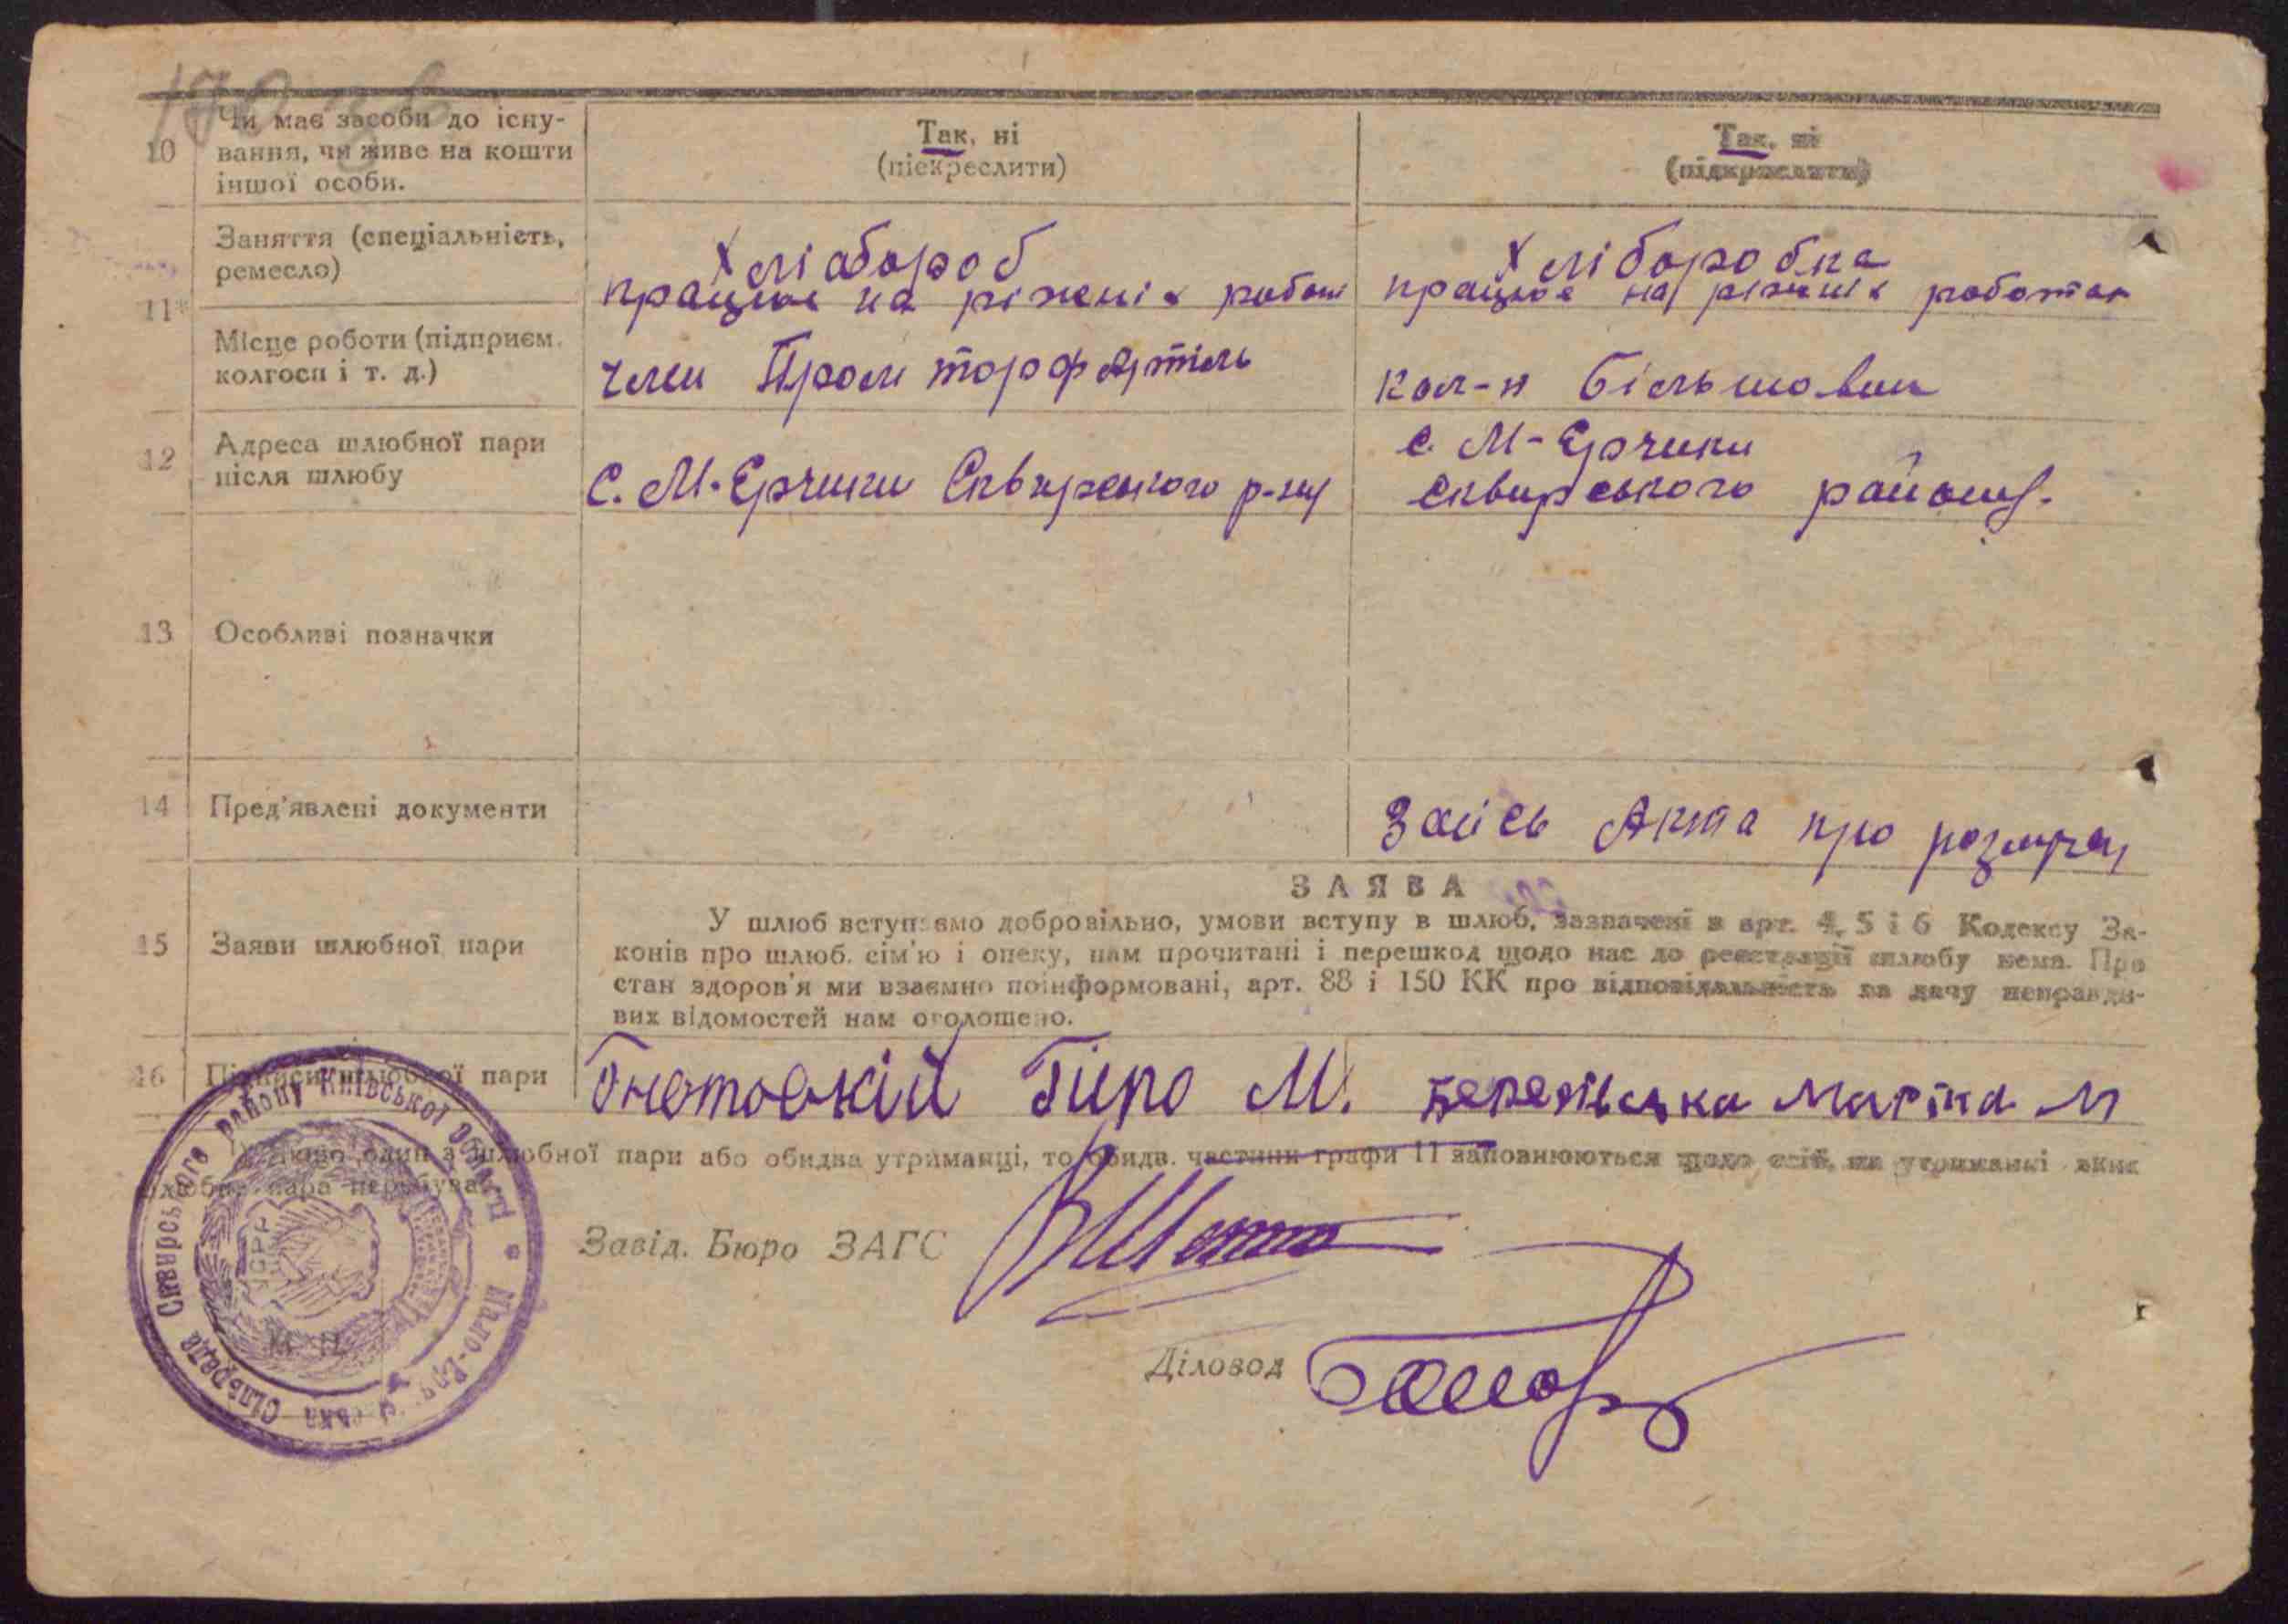 10
Чи має засоби до існу-
вання, чи живе на кошти
іншої особи.
Так, ні
(піекреслити)
Так, ні
(підкреслити)
11*
Заняття (спеціальність,
ремесло)
Хліабороб
працює на ріжних робот
Хліборобка
працює на ріжних роботах
Місце роботи (підприєм.
колгосп і т. д.)
член Пром торф Артіль
кол-п Більшовик
12
Адреса шлюбної пари
після шлюбу
С. М-Єрчики Сквирського р-ну
с. М-Єрчики
Сквирського району.
13
Особливі позначки
14
Пред'явлені документи
Акта про розлуку
15
Заяви шлюбної пари
ЗАЯВА
У шлюб вступаємо добровільно, умови вступу в шлюб, зазначені в арт. 4, 5 і 6 Кодексу За-
конів про шлюб, сім'ю і опеку, нам прочитані і перешкод щодо нас до реєстрації шлюбу нема. Про
стан здоров'я ми взаємно поінформовані, арт. 88 і 150 КК про відповідальність за дачу неправди-
вих відомостей нам оголошено.
16
Підписи шлюбної пари
М. Марта М
Якщо один з шлюбної пари або обидва утриманці, то обидв. частини графи 11 заповнюються щодо осіб, на утриманні яких
шлюбна пара перебуває.
Завід. Бюро ЗАГС
Діловод
Мало-Єрчиківська Сільрада Сквирського району Київської області
УСРР